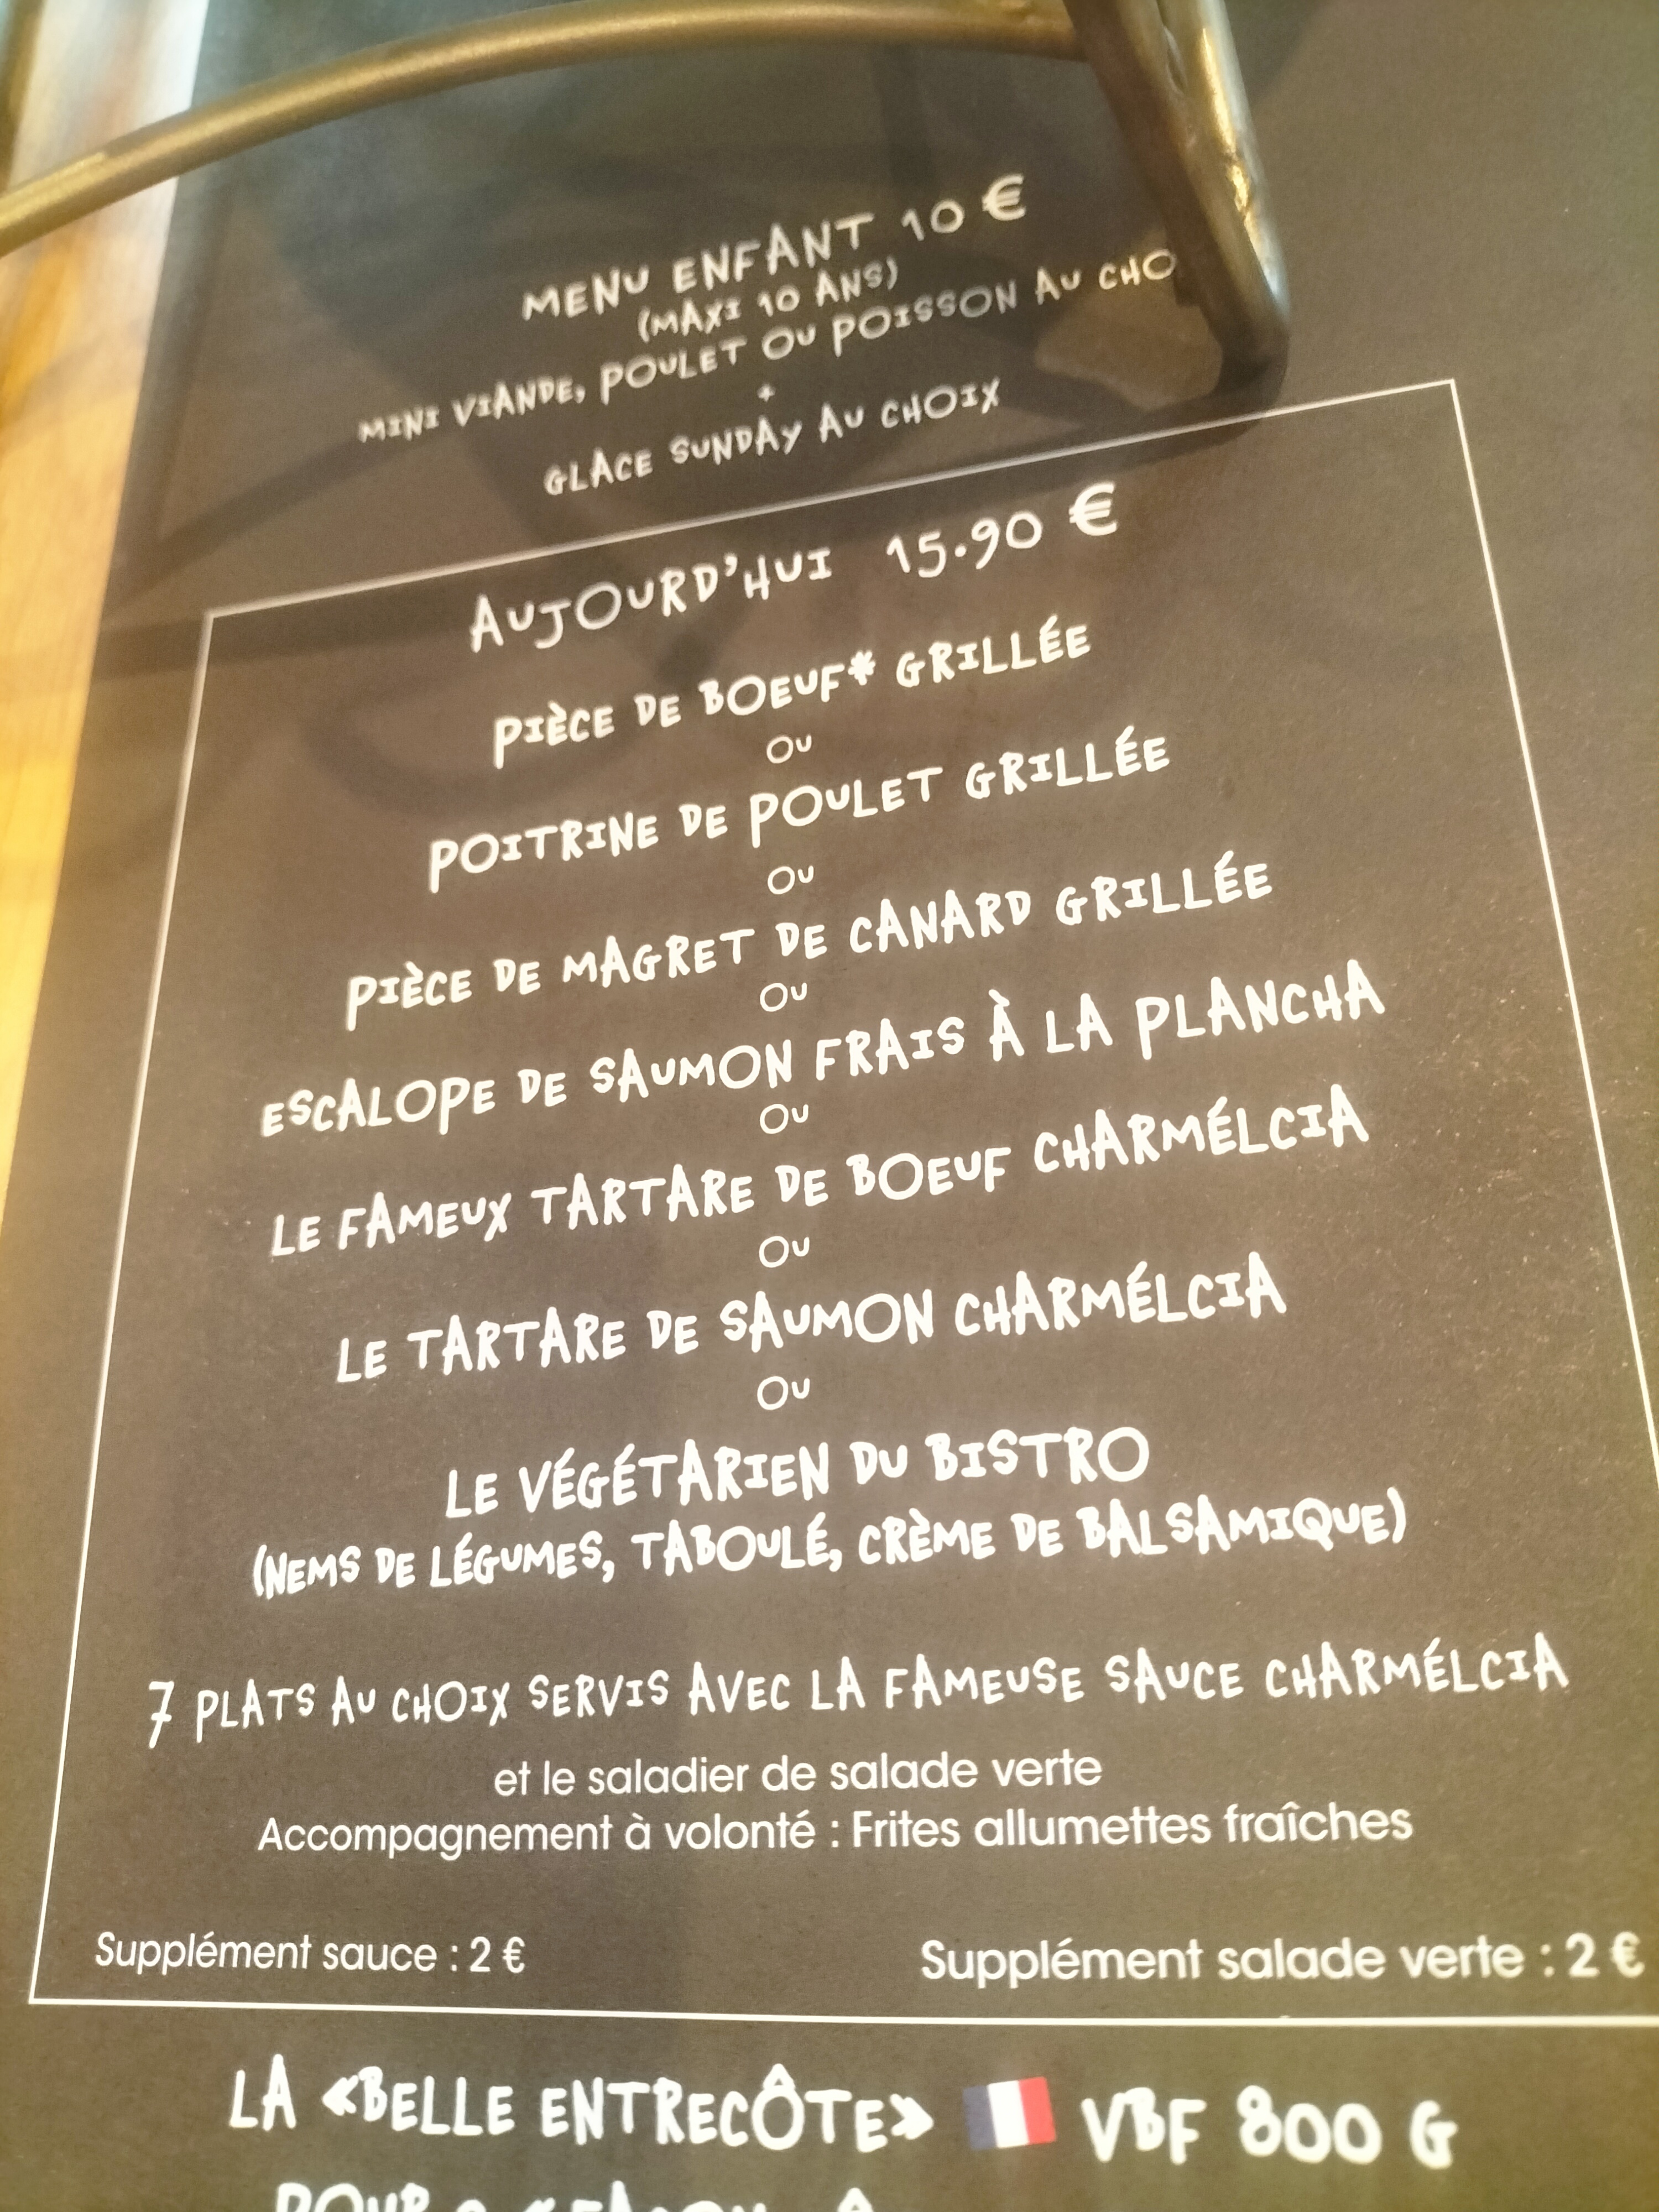 MENU ENFANT 10 €
(MAXI 10 ANS)
MINI VIANDE, POULET OU POISSON AU
+
GLACE SUNDAY AU CHOIX
AUJOURD'HUI 15.90 €
PIÈCE DE BOEUF* GRILLÉE
OU
POITRINE DE POULET GRILLÉE
OU
PIÈCE DE MAGRET DE CANARD GRILLÉE
OU
ESCALOPE DE SAUMON FRAIS À LA PLANCHA
OU
LE FAMEUX TARTARE DE BOEUF CHARMÉLCIA
OU
LE TARTARE DE SAUMON CHARMÉLCIA
OU
LE VÉGÉTARIEN DU BISTRO
(NEMS DE LÉGUMES, TABOULÉ, CRÈME DE BALSAMIQUE)
7 PLATS AU CHOIX SERVIS AVEC LA FAMEUSE SAUCE CHARMÉLCIA
et le saladier de salade verte
Accompagnement à volonté : Frites allumettes fraîches
Supplément sauce : 2 €
Supplément salade verte : 2 €
LA «BELLE ENTRECÔTE» VBF 800 G